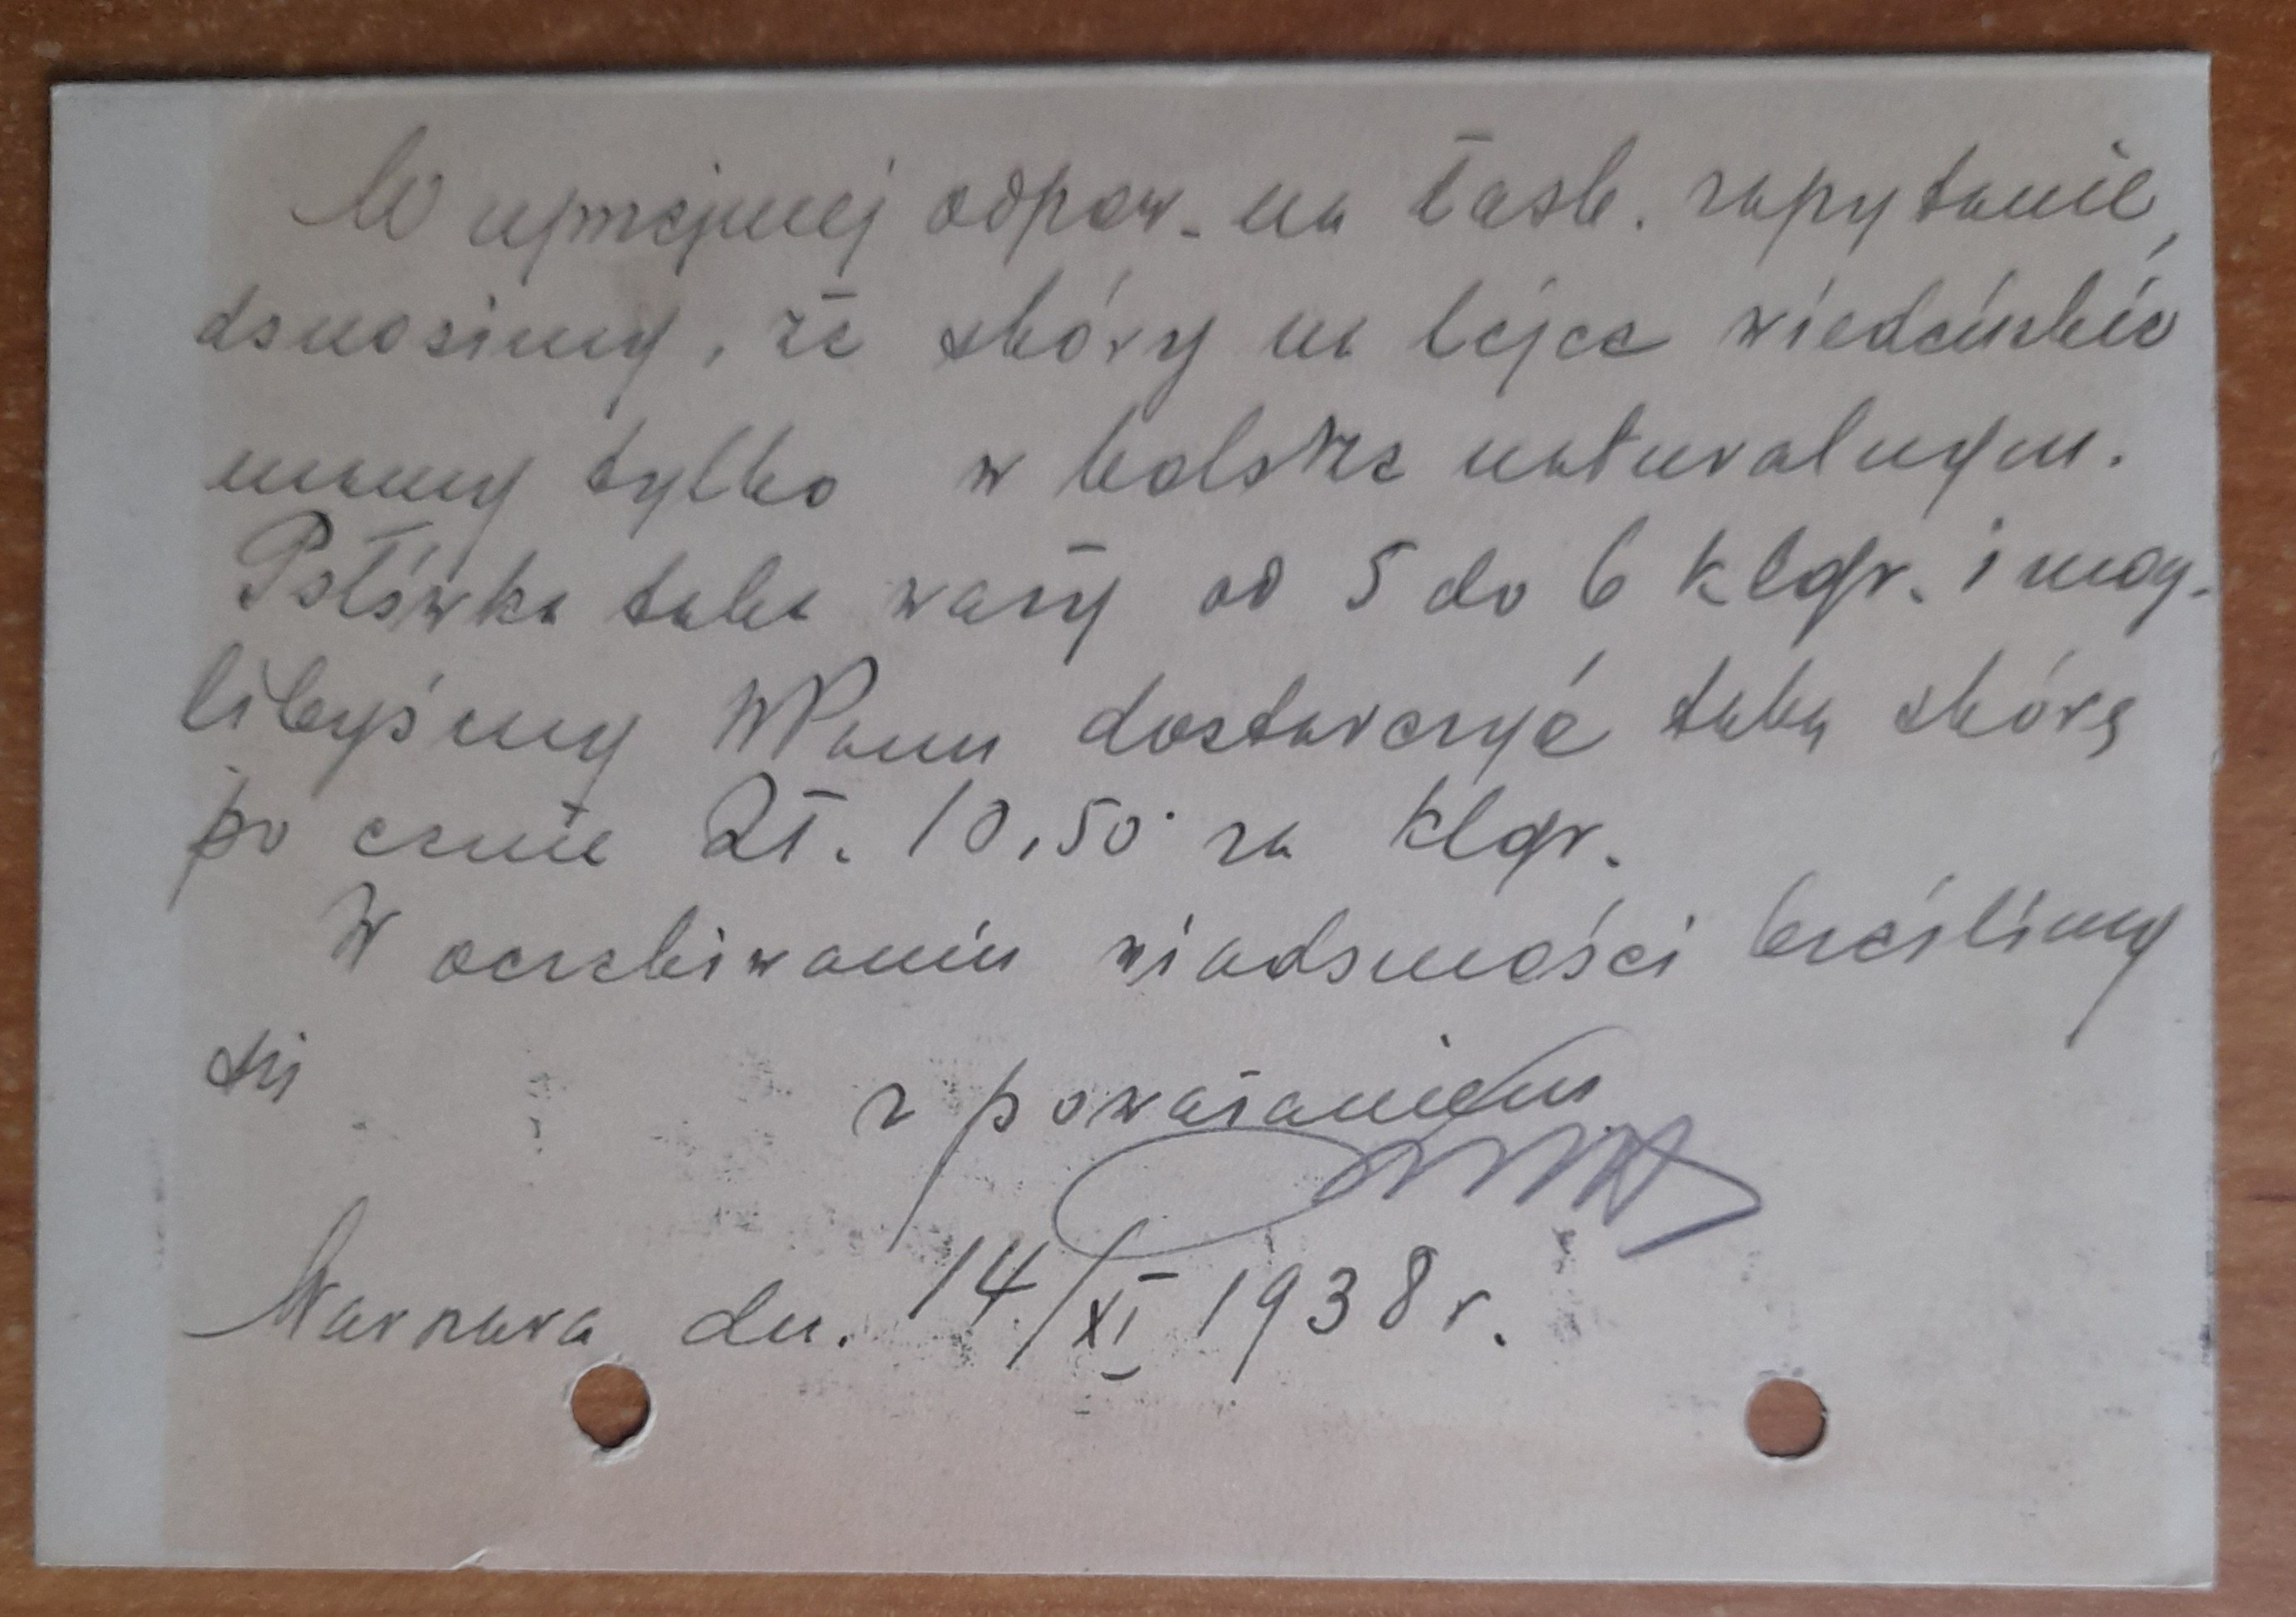 W uprzejmej odpow. na łask. zapytanie,
donosimy, że skóry na lejce wiedeńskie
mamy tylko w kolorze naturalnym.
Połówka taka waży od 5 do 6 klgr. i mog-
libyśmy WPanu dostarczyć taką skórę
po cenie Zł. 10,50 za klgr.
W oczekiwaniu wiadomości kreślimy
się
z poważaniem
Warszawa dn. 14/XI 1938 r.